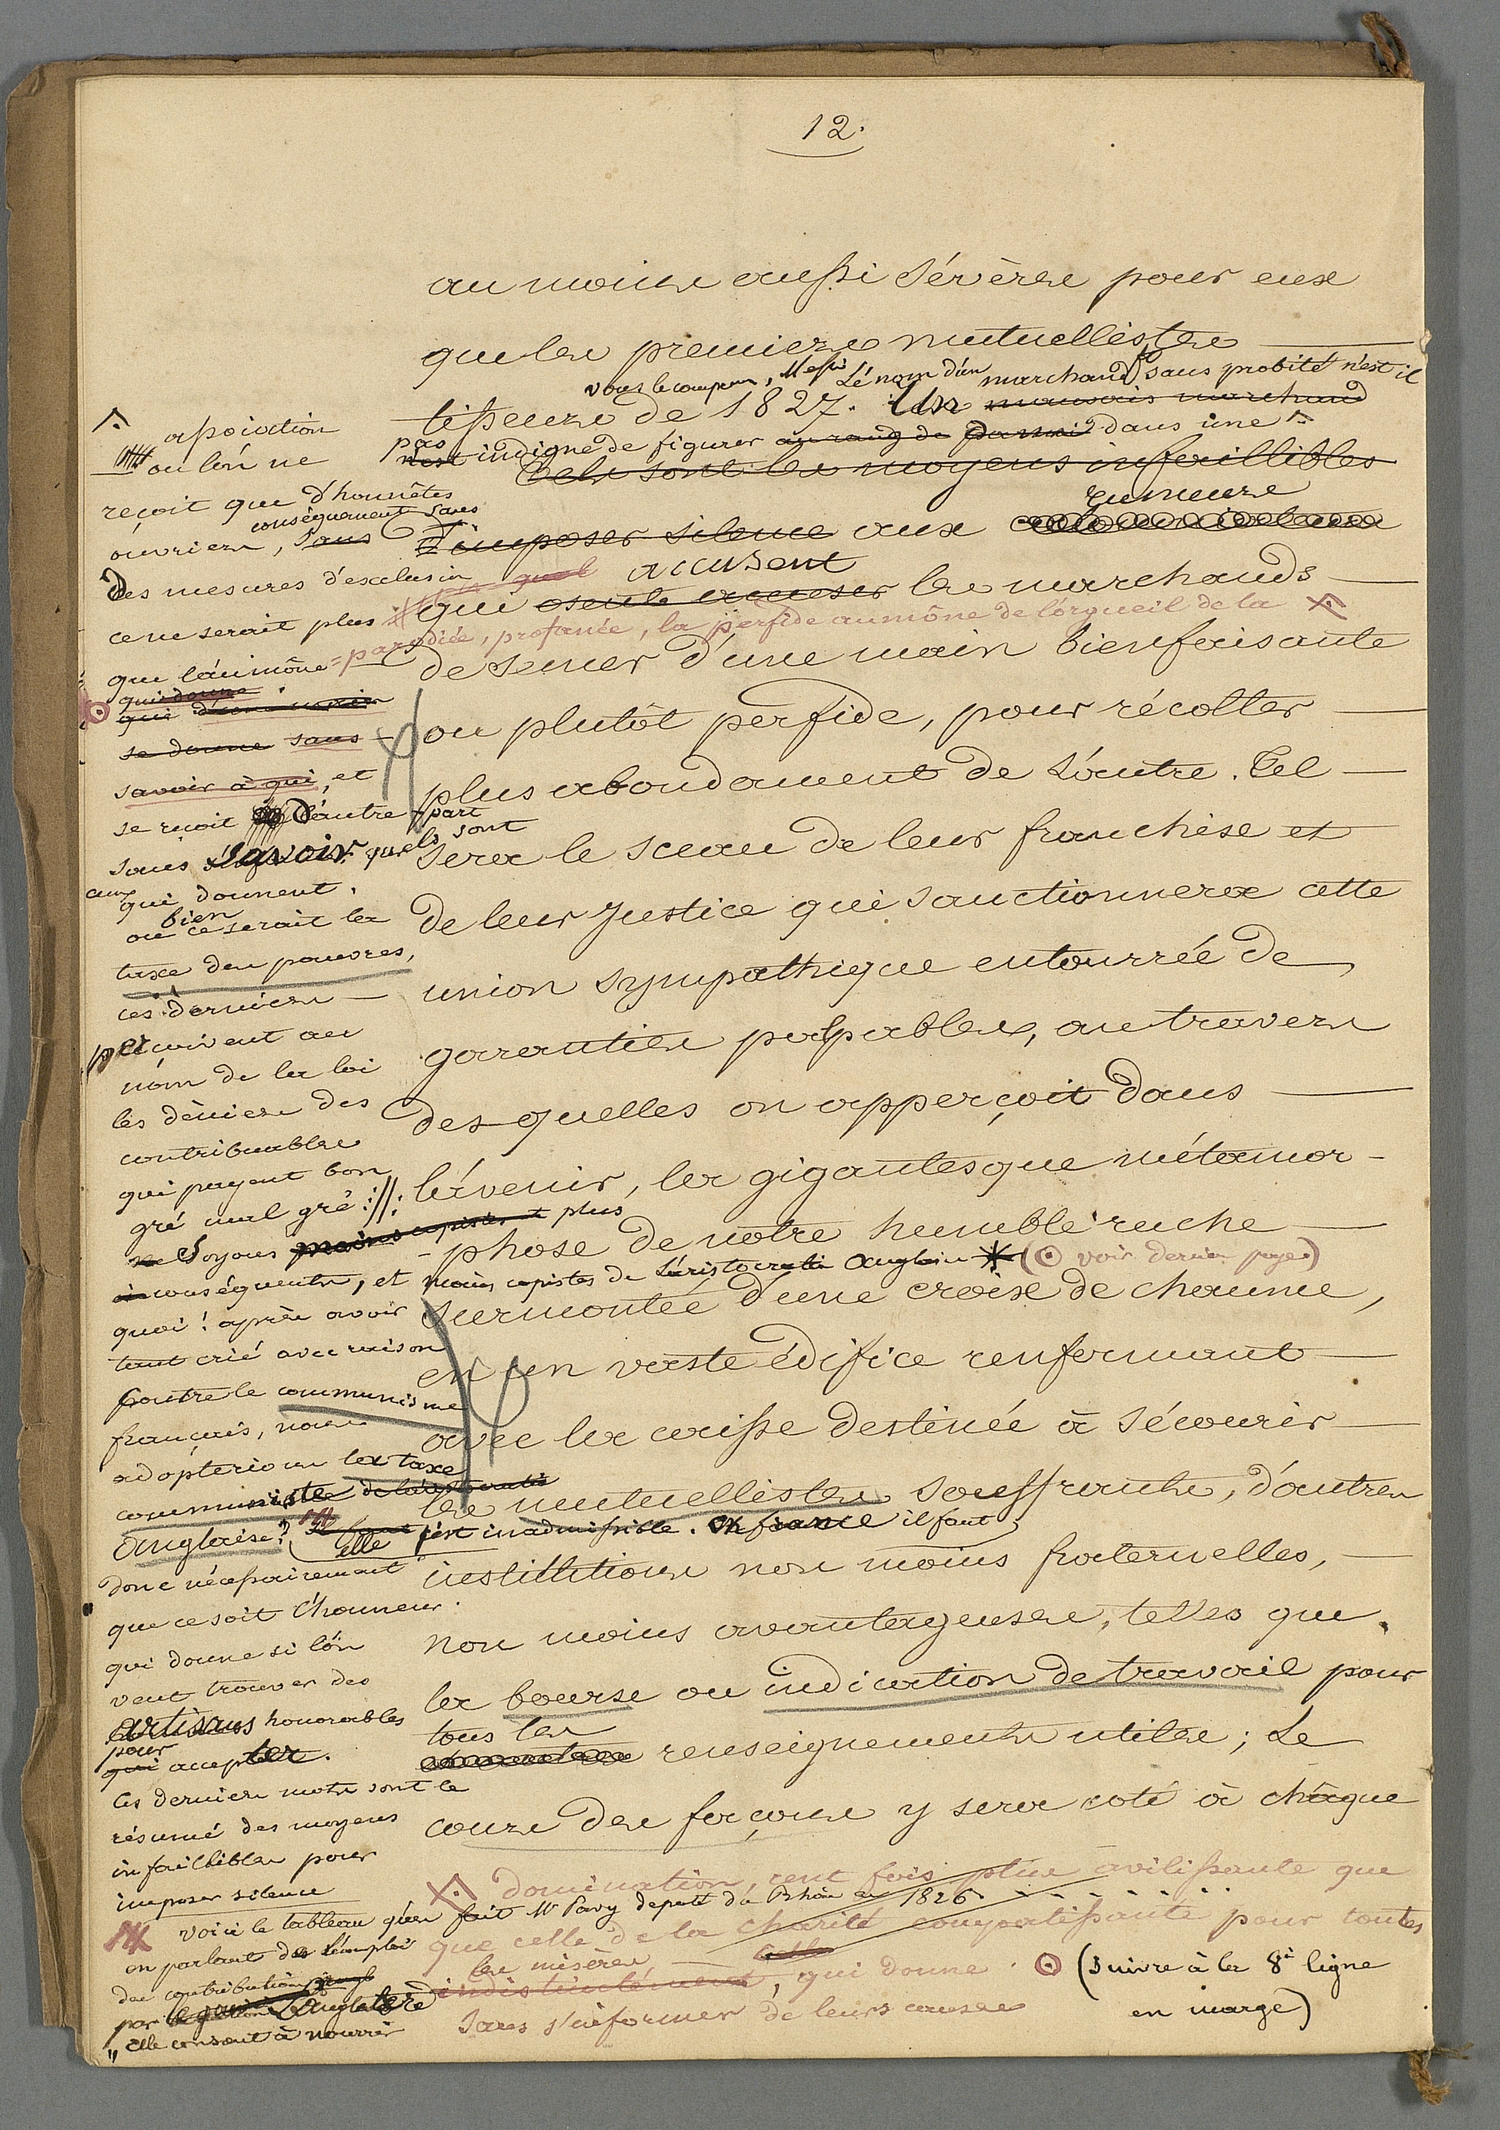 12.
au moins aussi sévères pour eux
que les premiers mutuellistes
vous le comprenez, Messrs Le nom d'un marchand sans probité n'est il
tisseurs de 1827. Un mauvais marchand
pas n'est indigne de figurer au rang de parmi dans une
Tels sont les moyens infaillibles
rumeurs
d'imposer silence aux
accusent
qui osent accuser les marchands
parodiée, profanée, la perfide aumône de l'orgueil de la
de semer d'une main bienfaisante
ou plutôt perfide, pour récolter
plus abondament de l'autre. Tel
sera le sceau de leur franchise et
de leur justice qui sanctionnera cette
union sympathique entourrée de
garanties palpables, au travers
des quelles on apperçoit dans
l'avenir, la gigantesque métamor-
-phose de notre humble ruche
moins copistes de l'aristocratie anglaise * (voir dernier page)
surmontée d'une croix de chaume,
en un vaste édifice renfermant
avec la caisse destinée à sécourir
les mutuellistes souffrants, d'autres
institutions non moins fraternelles,
non moins avantageuses, telles que
la bourse ou indication de travail pour
tous les
renseignements utiles; Le
cours des façons y sera coté à châque
domination, cent fois plus avilissante que
que celle de la charité compatissante pour toutes
les misères
indistinctement, qui donne
sans s'informer de leurs causes
(suivre à la 8e ligne
en marge)
association
ou l'on ne
reçoit que d'honnêtes
conséquement sans
ouvriers, sans
des mesures d'exclusion
ce ne serait plus
que l'aumône
qui donne
qui
se donne sans
savoir à qui, et
se reçoit d'autre part
sans savoir quels sont
ceux qui donnent.
bien
ou ce serait la
taxe des pauvres,
ces derniers
perçoivent au
nom de la loi
les deniers des
contribuables
qui payent bon
gré mal gré ://:
Soyons moins copistes et plus
conséquents, et
quoi! après avoir
tant crié avec raison
contre le communisme
français, nous
adopterions la taxe
communiste de l'aristocratie
anglaise?
elle est inadmissible. il faut
donc nécessairement
que ce soit l'honneur
qui donne si l'on
veut trouver des
artisans honorables
pour
qui accepter.
Ces derniers mots sont le
résumé des moyens
infaillibles pour
imposer silence
voici le tableau qu'en fait Mr Pavy deputé du Rhône en 1826.
en parlant de l'emploi
des contributions
par l'Angleterre
" elle consent à nourrir